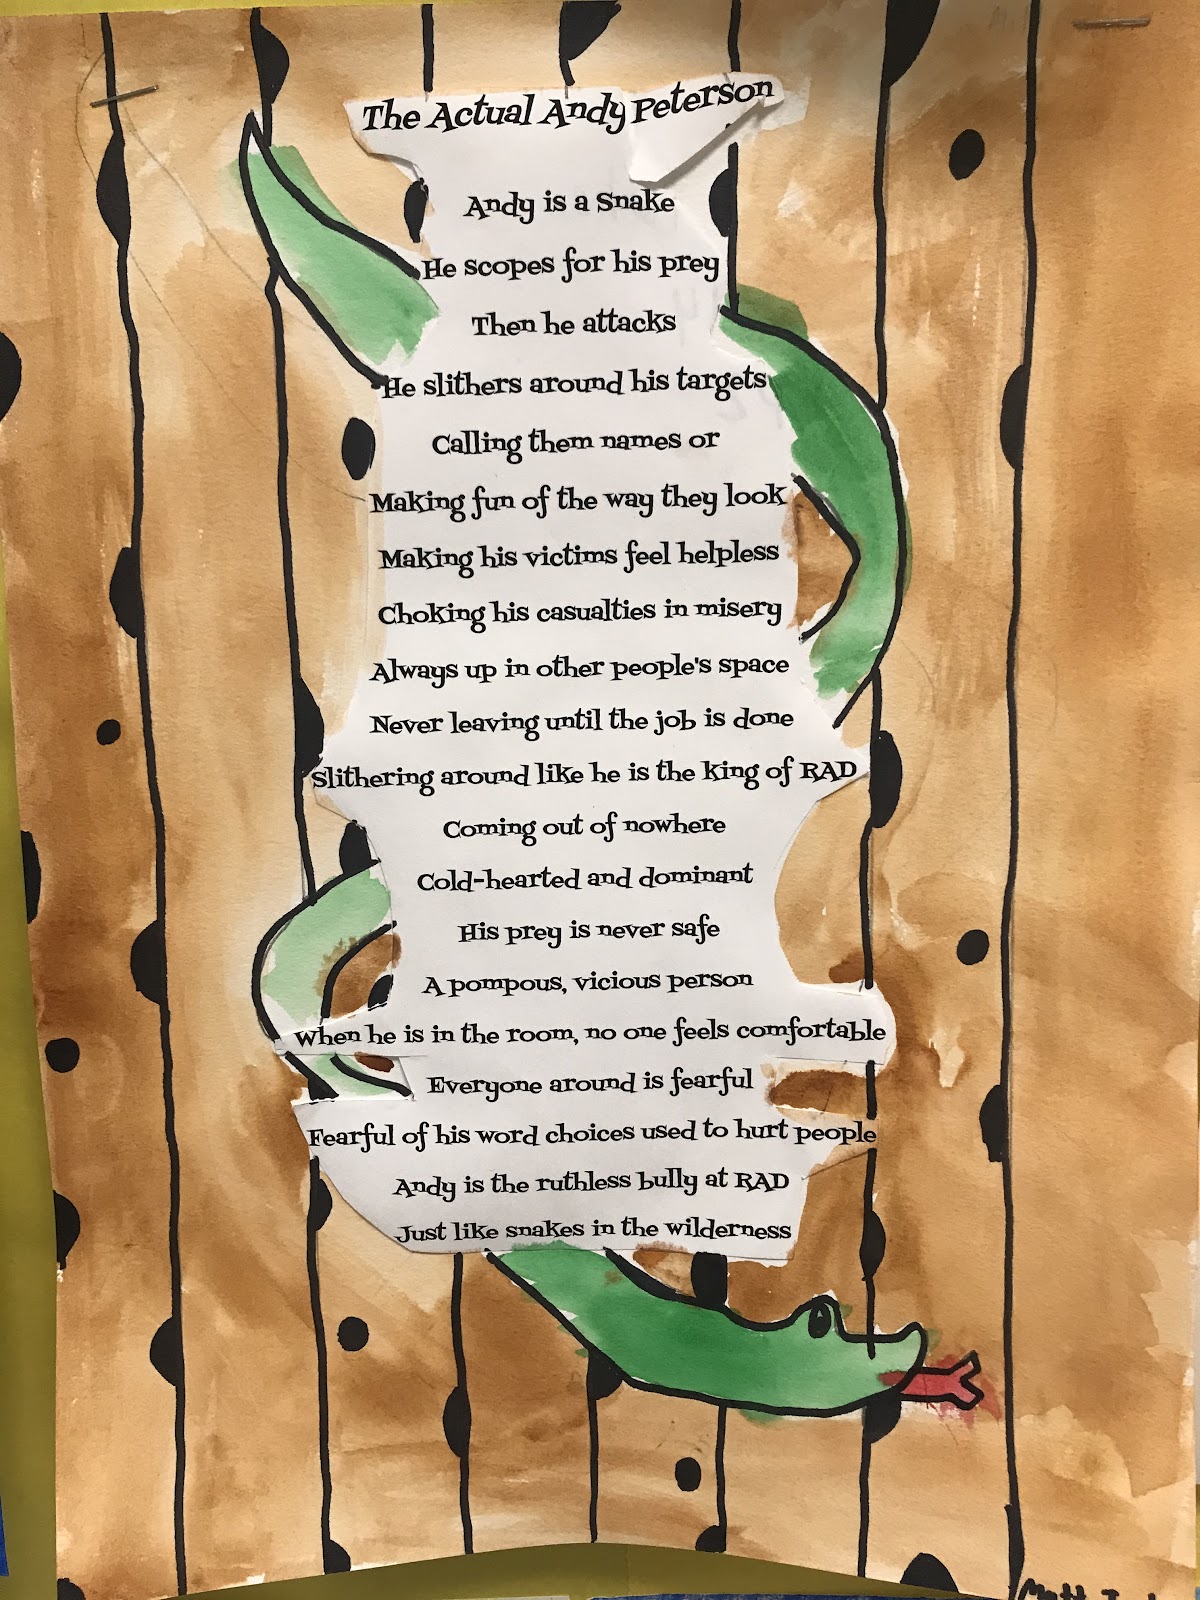 The Actual Andy Peterson
Andy is a Snake
He scopes for his prey
Then he attacks
He slithers around his targets
Calling them names or
Making fun of the way they look
Making his victims feel helpless
Choking his casualties in misery
Always up in other people's space
Never leaving until the job is done
Slithering around like he is the king of RAD
Coming out of nowhere
Cold-hearted and dominant
His prey is never safe
A pompous, vicious person
When he is in the room, no one feels comfortable
Everyone around is fearful
Fearful of his word choices used to hurt people
Andy is the ruthless bully at RAD
Just like snakes in the wilderness
Matt